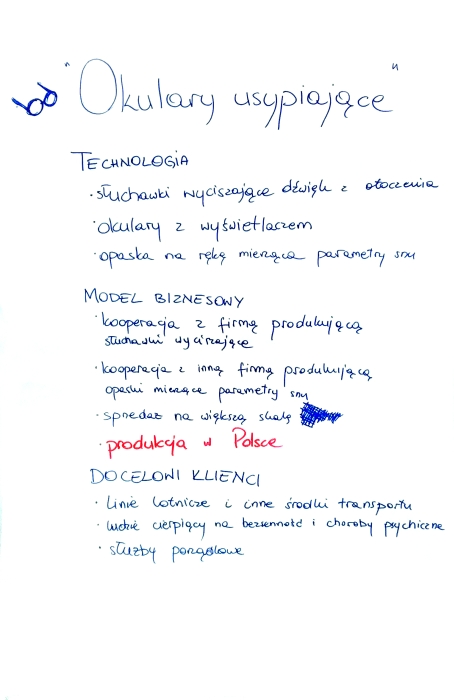 "Okulary usypiające"
TECHNOLOGIA
· słuchawki wyciszające dźwięk z otoczenia
· okulary z wyświetlaczem
· opaska na rękę mierząca parametry snu
MODEL BIZNESOWY
· kooperacja z firmą produkującą
słuchawki wyciszające
· kooperacja z inną firmą produkującą
opaski mierzące parametry snu
· sprzedaż na większą skalę
· produkcja w Polsce
DOCELOWI KLIENCI
· linie lotnicze i inne środki transportu
· ludzie cierpiący na bezsenność i choroby psychiczne
· służby porządkowe